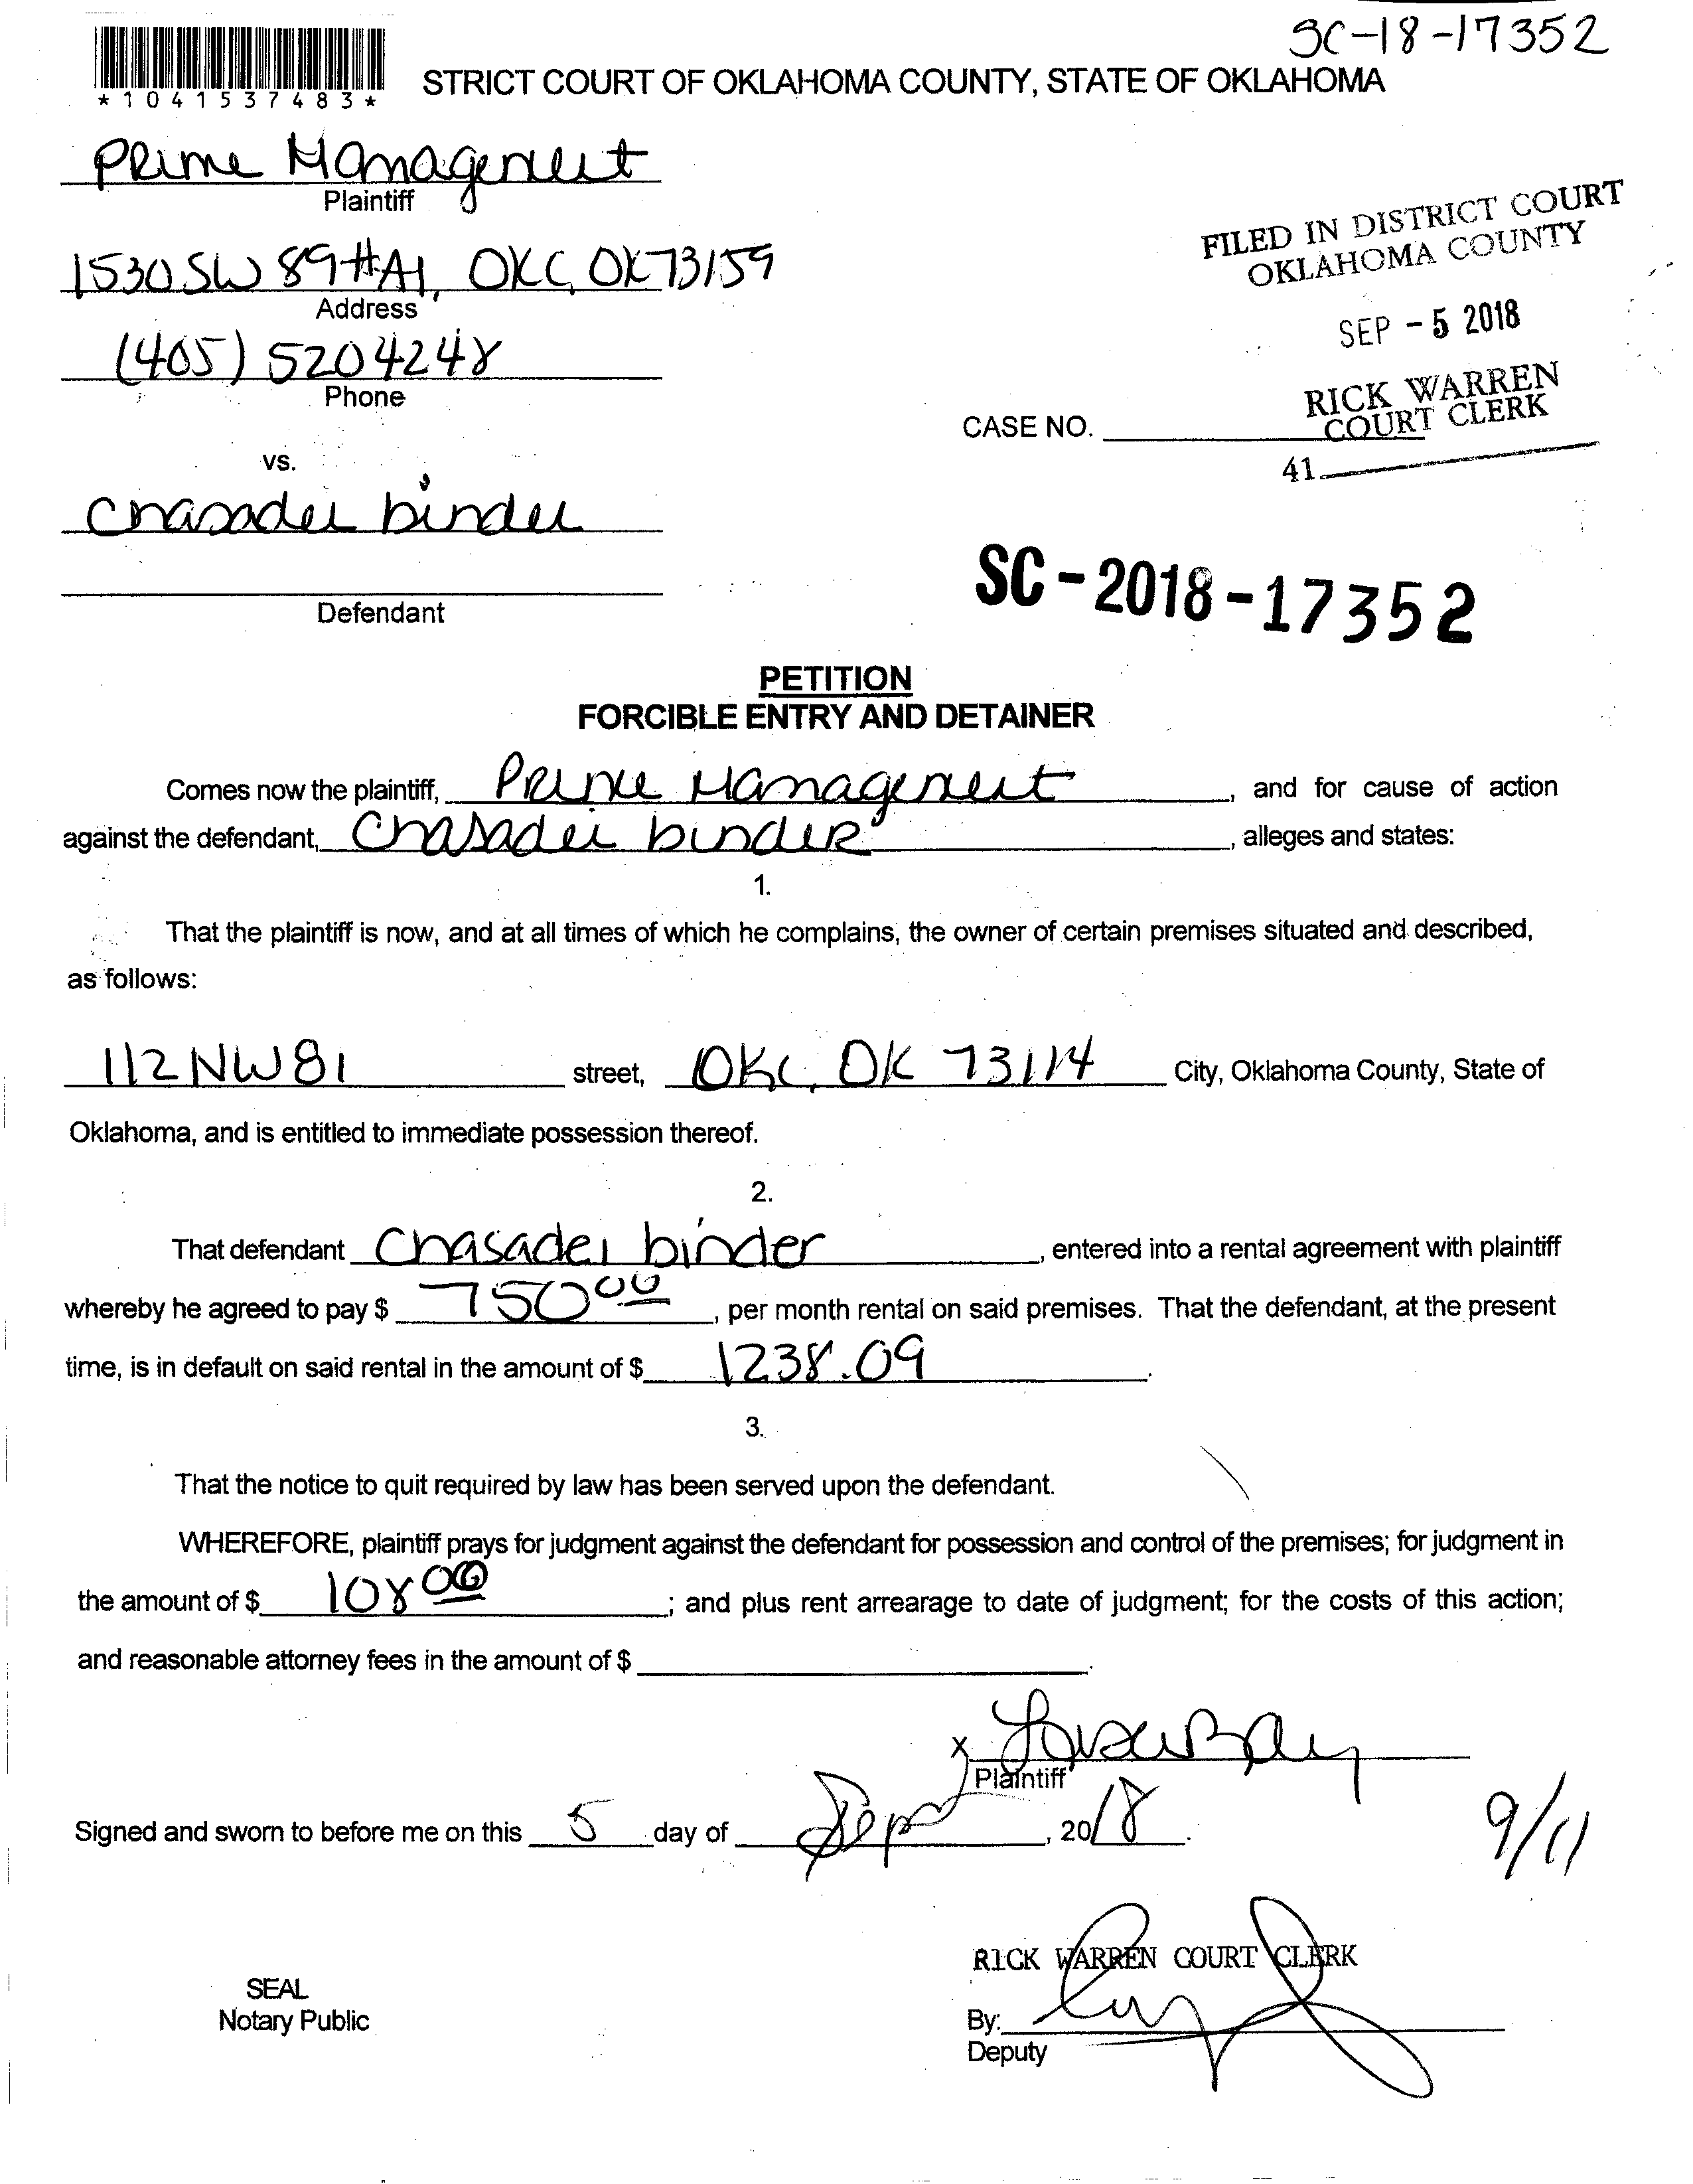 SC-18-17352
*1041537483*
STRICT COURT OF OKLAHOMA COUNTY, STATE OF OKLAHOMA
Prime Management
Plaintiff
1530 SW 89 #A1, OKC, OK 73159
Address
(405) 5204248
Phone
FILED IN DISTRICT COURT
OKLAHOMA COUNTY
SEP - 5 2018
RICK WARREN
COURT CLERK
CASE NO.
41
vs.
Chasadei binder
Defendant
SC-2018-17352
PETITION
FORCIBLE ENTRY AND DETAINER
Comes now the plaintiff, Prime Management, and for cause of action
against the defendant, Chasadei binder, alleges and states:
1.
That the plaintiff is now, and at all times of which he complains, the owner of certain premises situated and described,
as follows:
112 NW 81 street, OKC, OK 73114 City, Oklahoma County, State of
Oklahoma, and is entitled to immediate possession thereof.
2.
That defendant Chasadei binder, entered into a rental agreement with plaintiff
whereby he agreed to pay $ 750 00, per month rental on said premises. That the defendant, at the present
time, is in default on said rental in the amount of $ 1238.09.
3.
That the notice to quit required by law has been served upon the defendant.
WHEREFORE, plaintiff prays for judgment against the defendant for possession and control of the premises; for judgment in
the amount of $ 108 00; and plus rent arrearage to date of judgment; for the costs of this action;
and reasonable attorney fees in the amount of $ .
X
Plaintiff
Signed and sworn to before me on this 5 day of Sep, 2018.
9/11
RICK WARREN COURT CLERK
SEAL
Notary Public
By:
Deputy